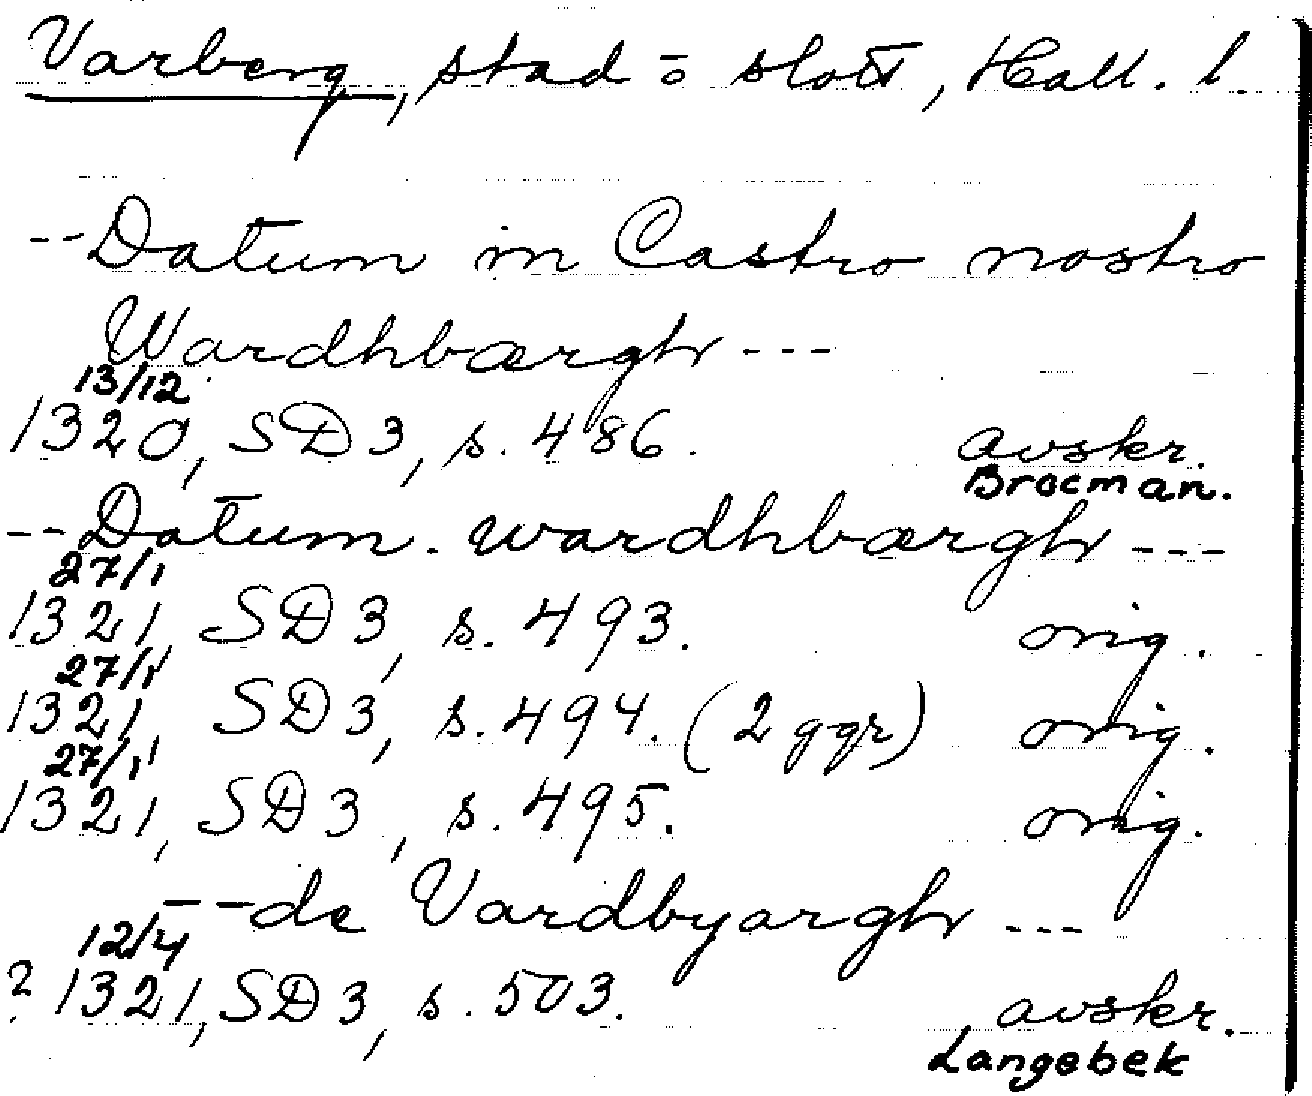 Varberg, stad o slott, Hall. l.
-- Datum in Castro nostro
Wardhbærgh ---
13/12
1320, SD 3, s. 486. avskr.
Brocman.
-- Datum. wardhbærgh ---
27/1
1321, SD 3, s. 493. orig.
27/1
1321, SD 3, s. 494. (2 ggr) orig.
27/1
1321, SD 3, s. 495. orig.
-- de Vardbyargh ---
12/4
? 1321, SD 3, s. 503. avskr.
Langebek